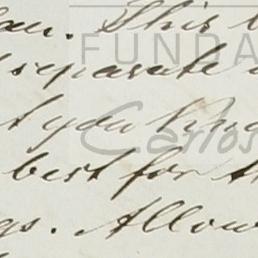 This
FUNDA
separate
t you
Carlos
best for th
gs. Allow